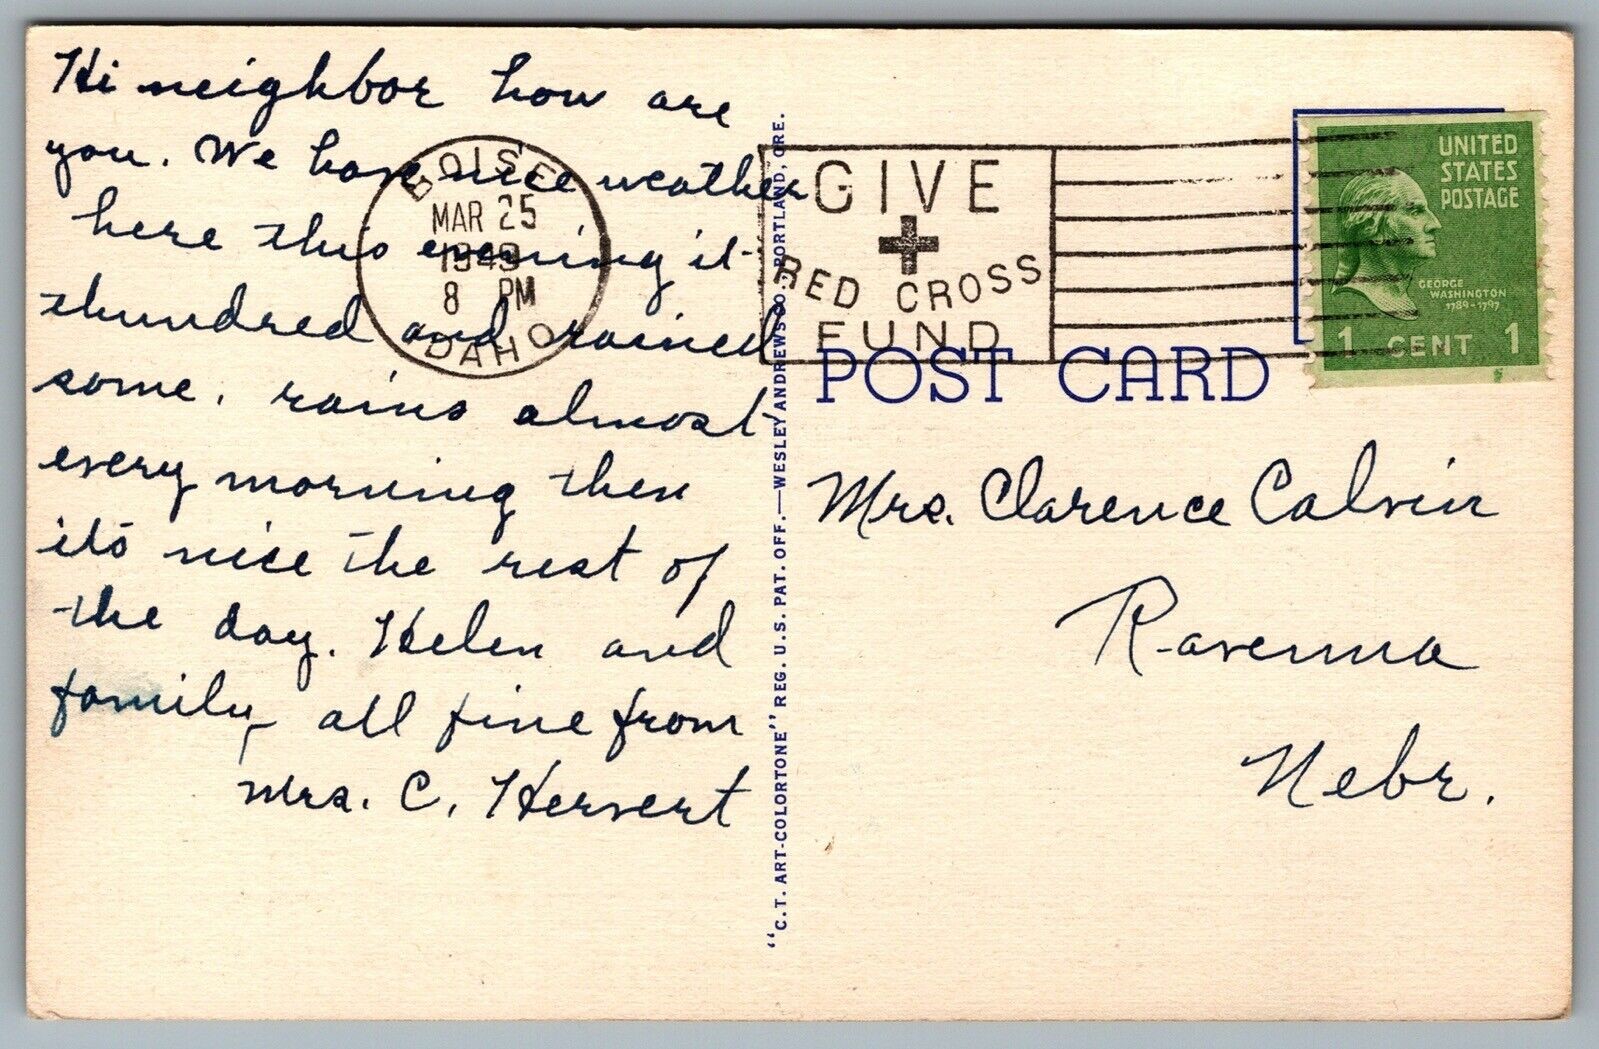 Hi neighbor how are
you. We have nice weather
here this evening it
thundred and rained
some. rains almost
every morning then
its nice the rest of
the day. Helen and
family all fine from
Mrs. C. Hervert
BOISE
MAR 25
1949
8 PM
IDAHO
GIVE
RED CROSS
FUND
UNITED
STATES
POSTAGE
GEORGE
WASHINGTON
1789-1797
1 CENT 1
POST CARD
Mrs. Clarence Calvin
Ravenna
Nebr.
"C.T. ART-COLORTONE" REG. U.S. PAT. OFF.—WESLEY ANDREWS CO., PORTLAND, ORE.